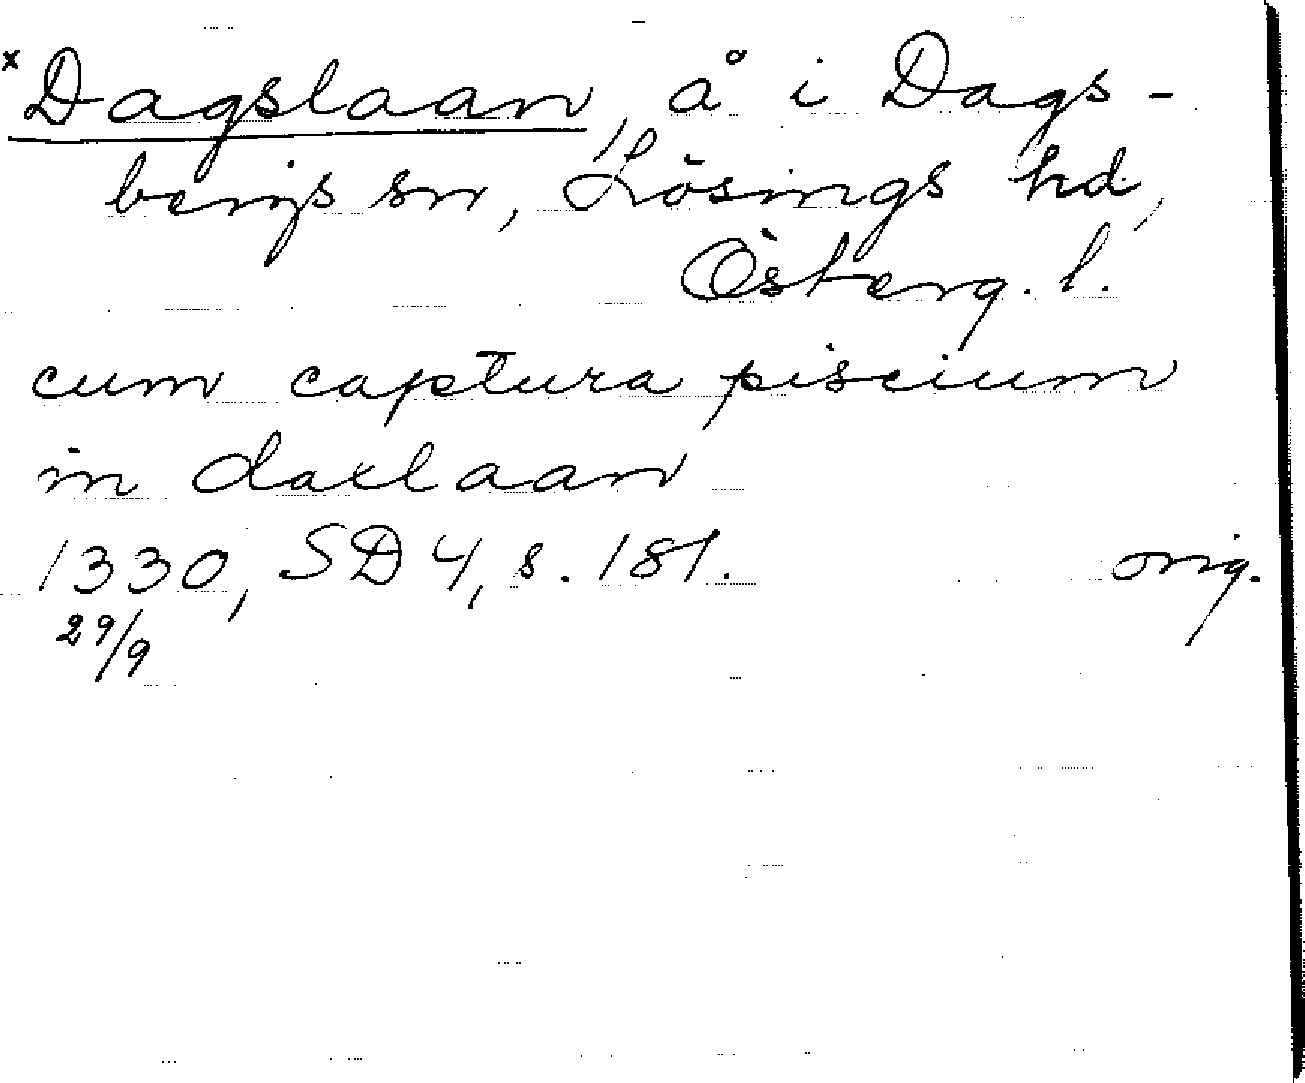 x Dagslaan, å i Dags-
bergs sn, Lösings hd,
Österg. l.
cum captura piscium
in daxlaan
1330, SD 4, s. 181. orig.
29/9